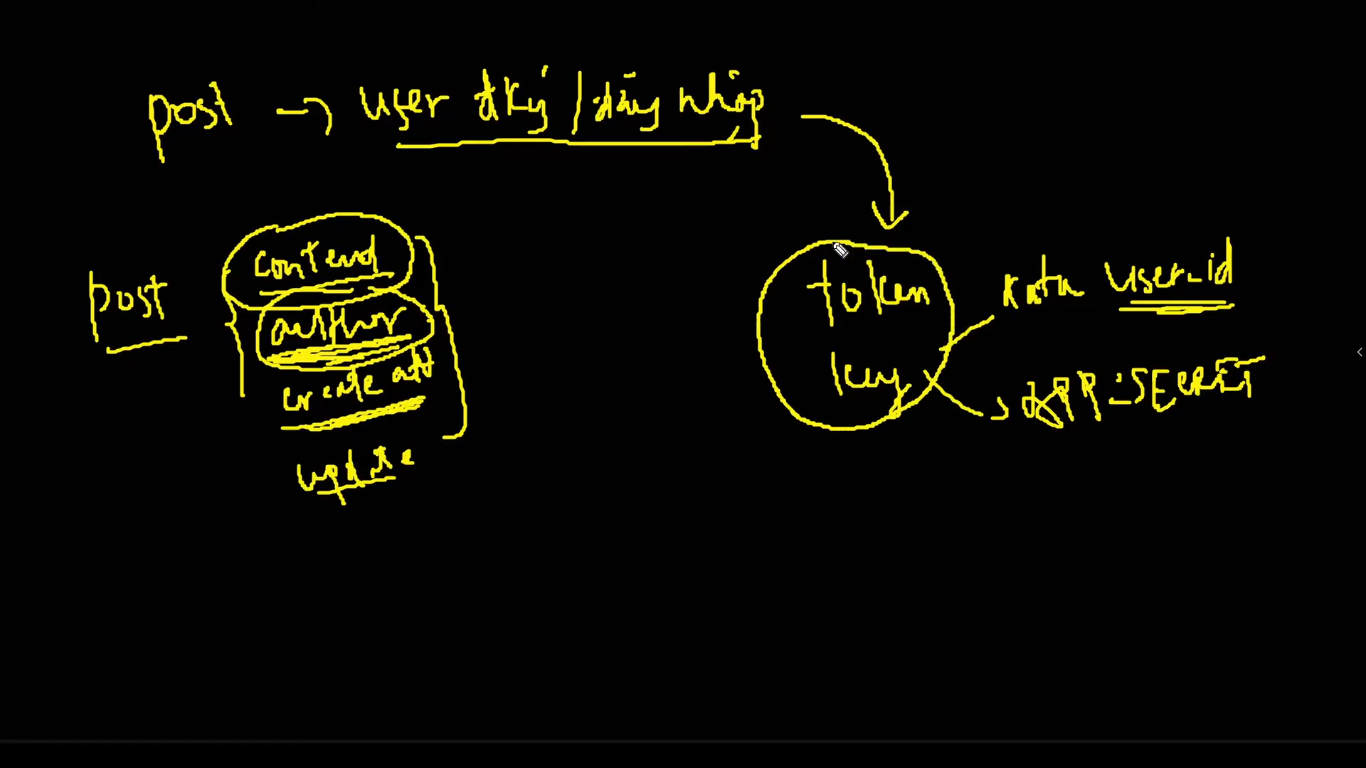 post → user đký / đăng nhập
post
contend
author
create att
update
token
key
user_id
APP_SECRET